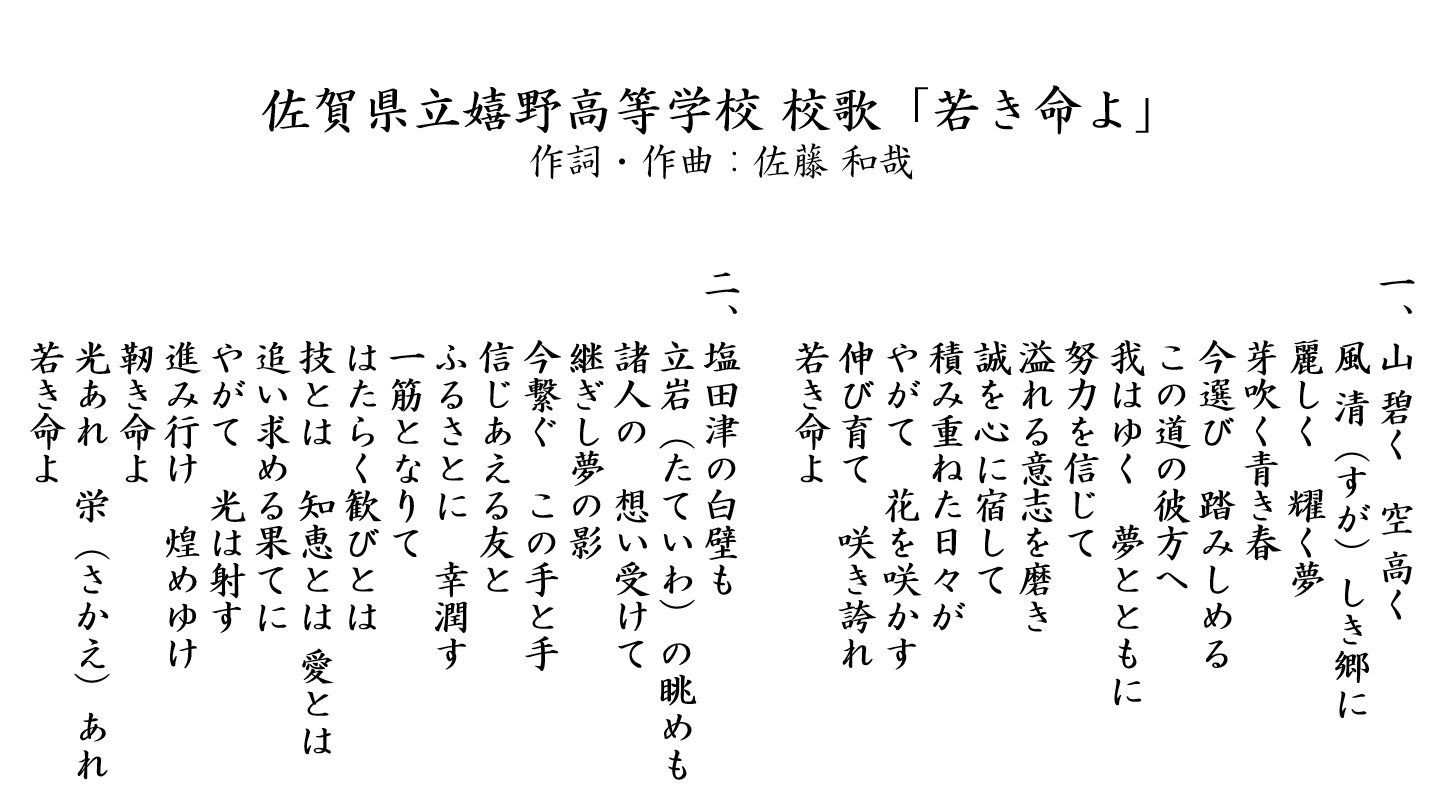 佐賀県立嬉野高等学校 校歌「若き命よ」
作詞・作曲：佐藤 和哉
一、山 碧く 空 高く
風 清（すが）しき郷に
麗しく 耀く夢
芽吹く青き春
今選び 踏みしめる
この道の彼方へ
我はゆく 夢とともに
努力を信じて
溢れる意志を磨き
誠を心に宿して
積み重ねた日々が
やがて 花を咲かす
伸び育て 咲き誇れ
若き命よ
二、塩田津の白壁も
立岩（たていわ）の眺めも
諸人の 想い受けて
継ぎし夢の影
今繋ぐ この手と手
信じあえる友と
ふるさとに 幸潤す
一筋となりて
はたらく歓びとは
技とは 知恵とは 愛とは
追い求める果てに
やがて 光は射す
進み行け 煌めゆけ
靭き命よ
光あれ 栄（さかえ）あれ
若き命よ